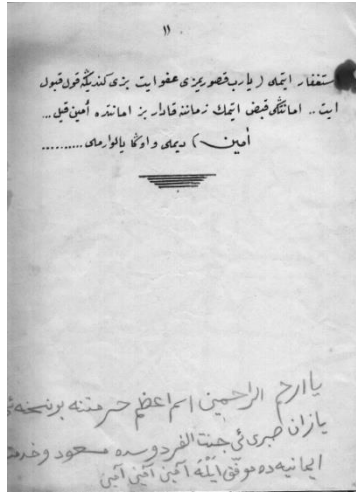 ١١
استغفار ایتملی ( یارب قصوریمزی عفو ایت بزی کندیڭه قول قبول
ایت .. امانتڭی قبض ایتمك زماننه قادار بز امانتده أمین قیل ...
أمین ) دیملی و اوڭا یالوارملی ..........
یا ارحم الراحمین اسم اعظم حرمتنه بو نسخه ئی
یازان صبری ئی جنت الفردوسده مسعود و خدمت
ایمانیه ده موفق ایله آمین آمین آمین